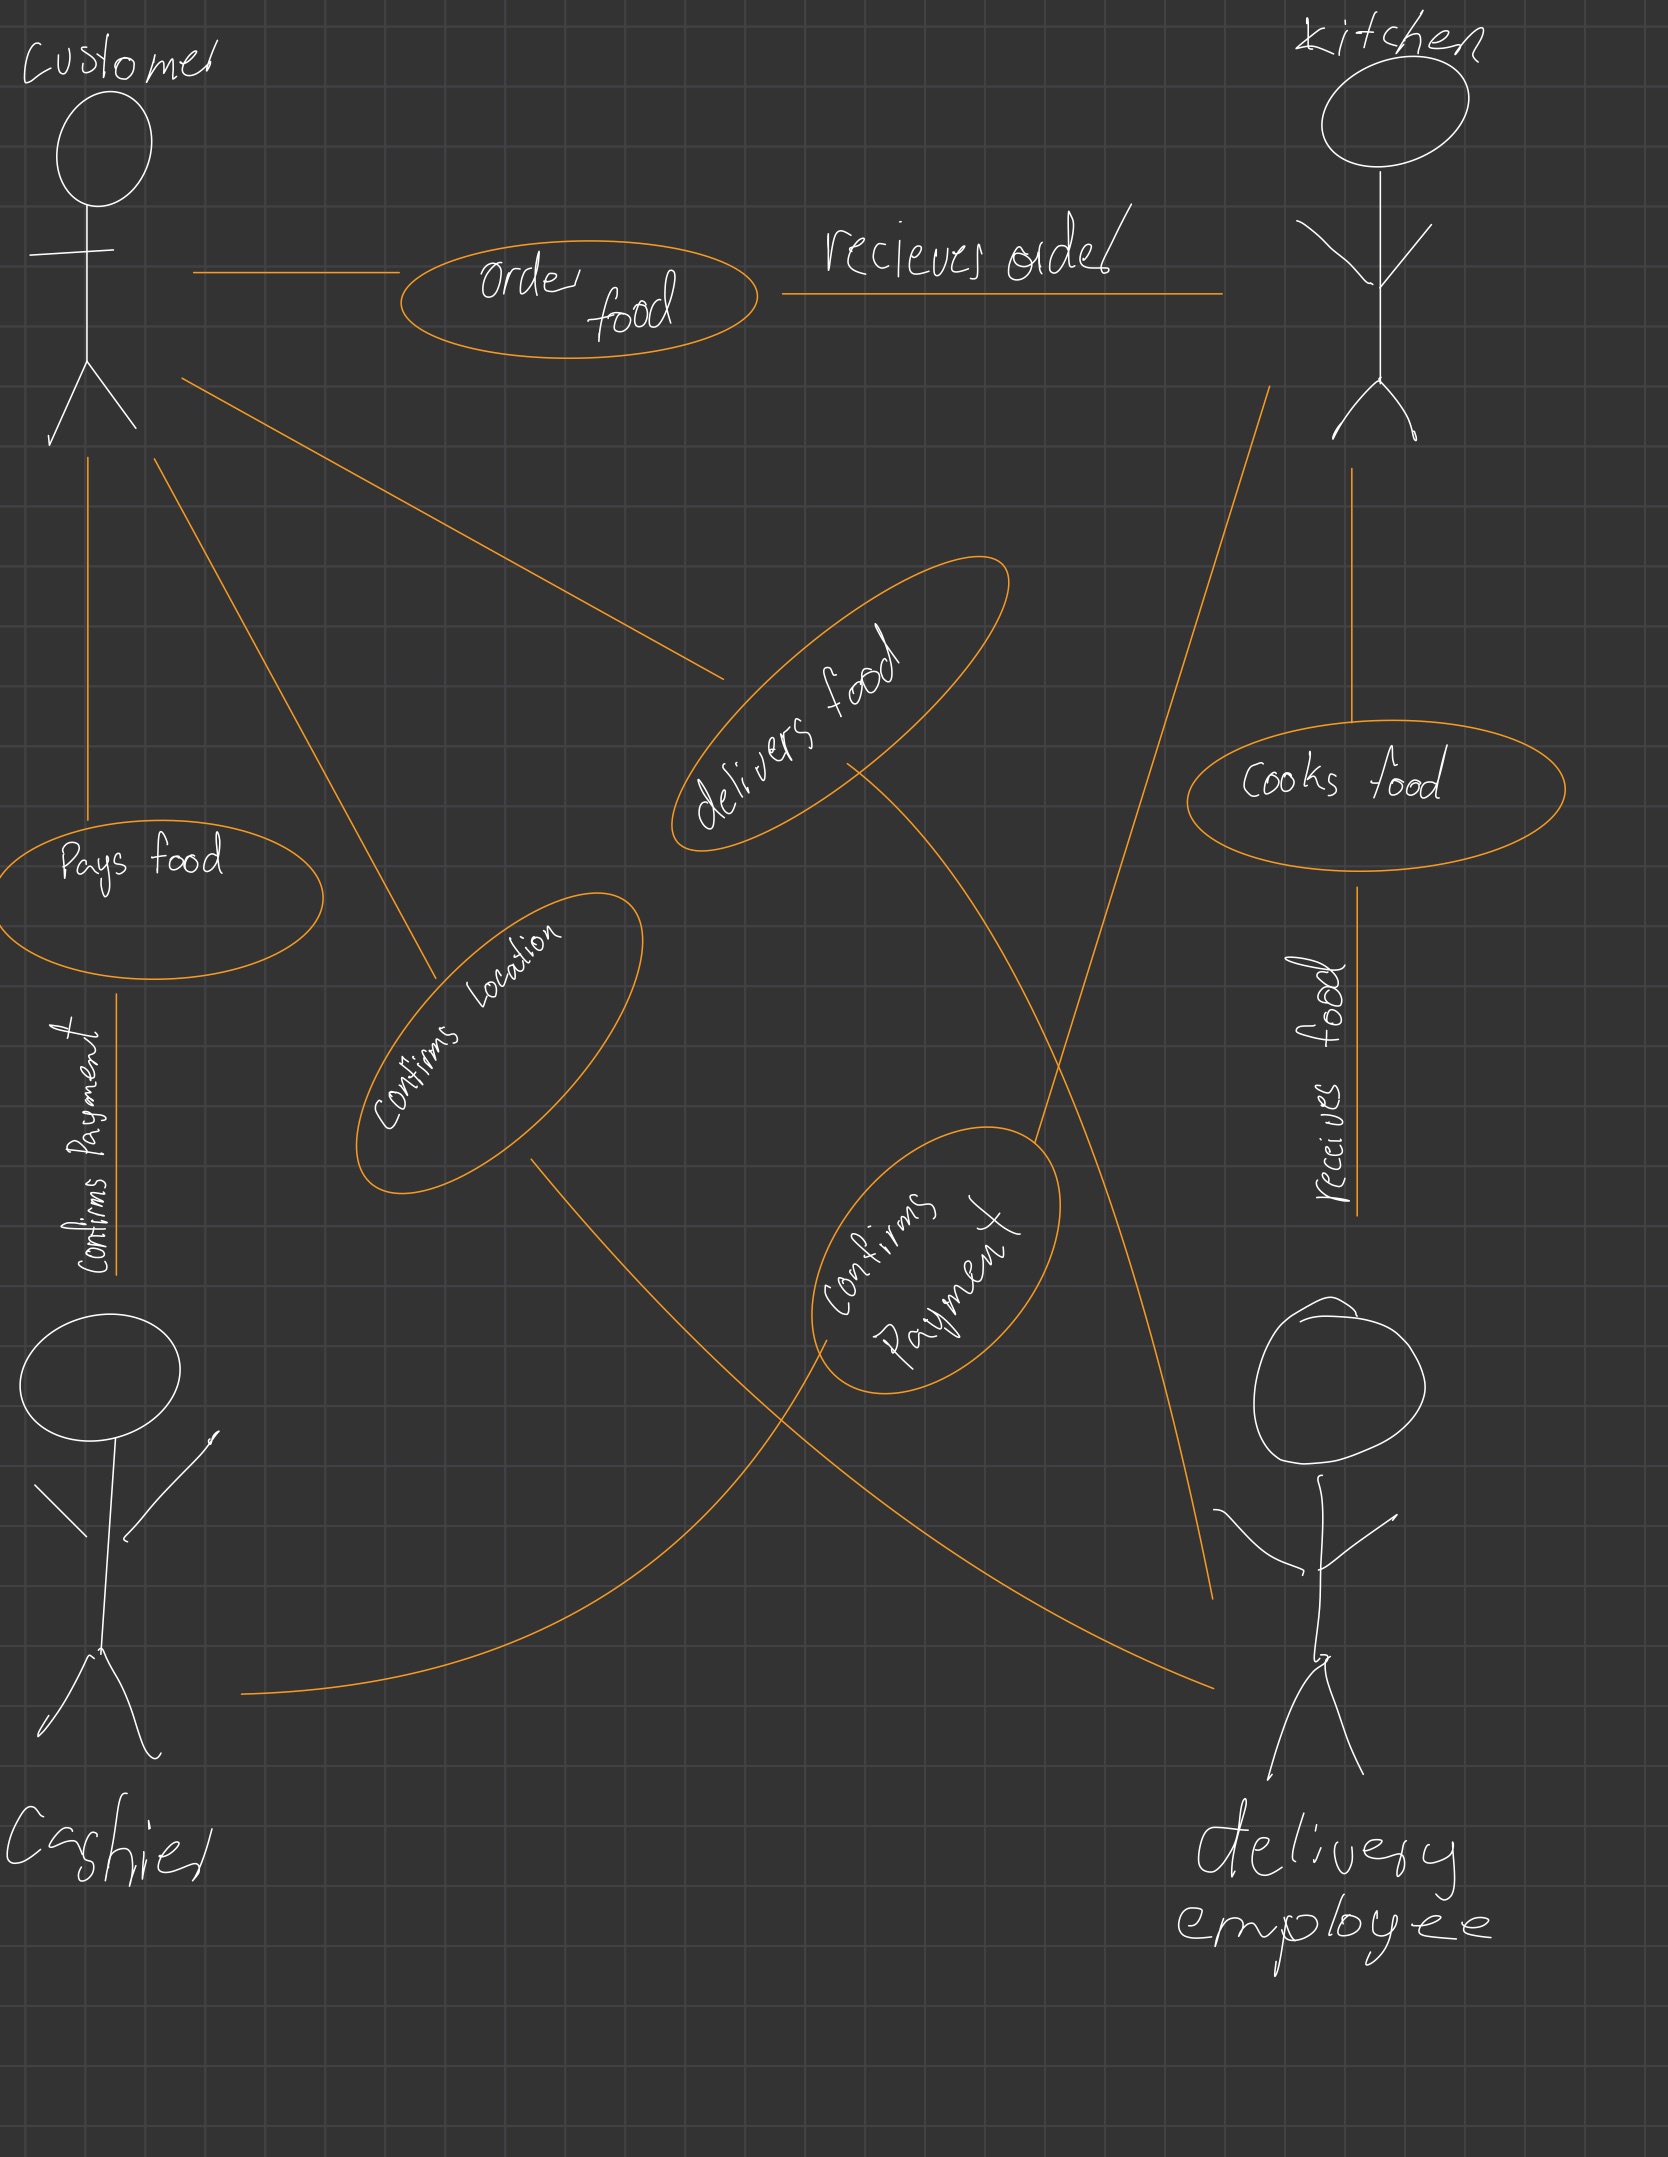 Customer
Kitchen
Order
food
recieves order
delivers food
Cooks food
Pays food
Confirms Location
Confirms Payment
receives food
Confirms
Payment
Cashier
delivery
employee